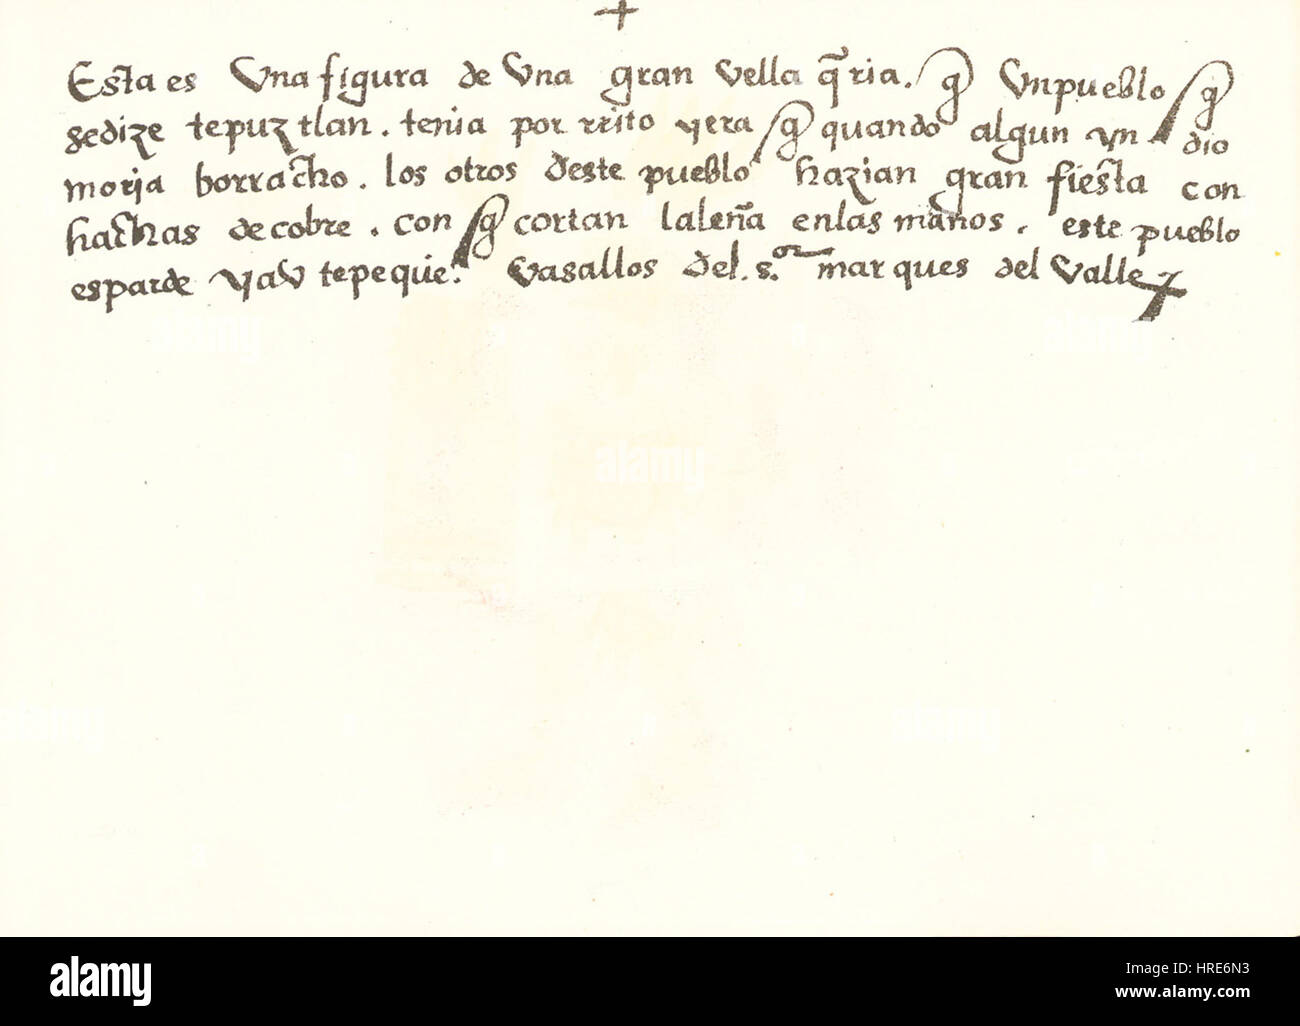 +
Esta es una figura de una gran vellaq̄ria. q̄ un pueblo q̄
se dize tepuztlan. tenia por rrito y era q̄ quando algun yn dio
moria borracho. los otros deste pueblo hazian gran fiesta con
hachas de cobre. con q̄ cortan la leña en las manos. este pueblo
es par de yautepeque. vasallos del. s.or marques del valle
alamy
alamy
alamy
alamy
alamy
alamy
Image ID: HRE6N3
www.alamy.com